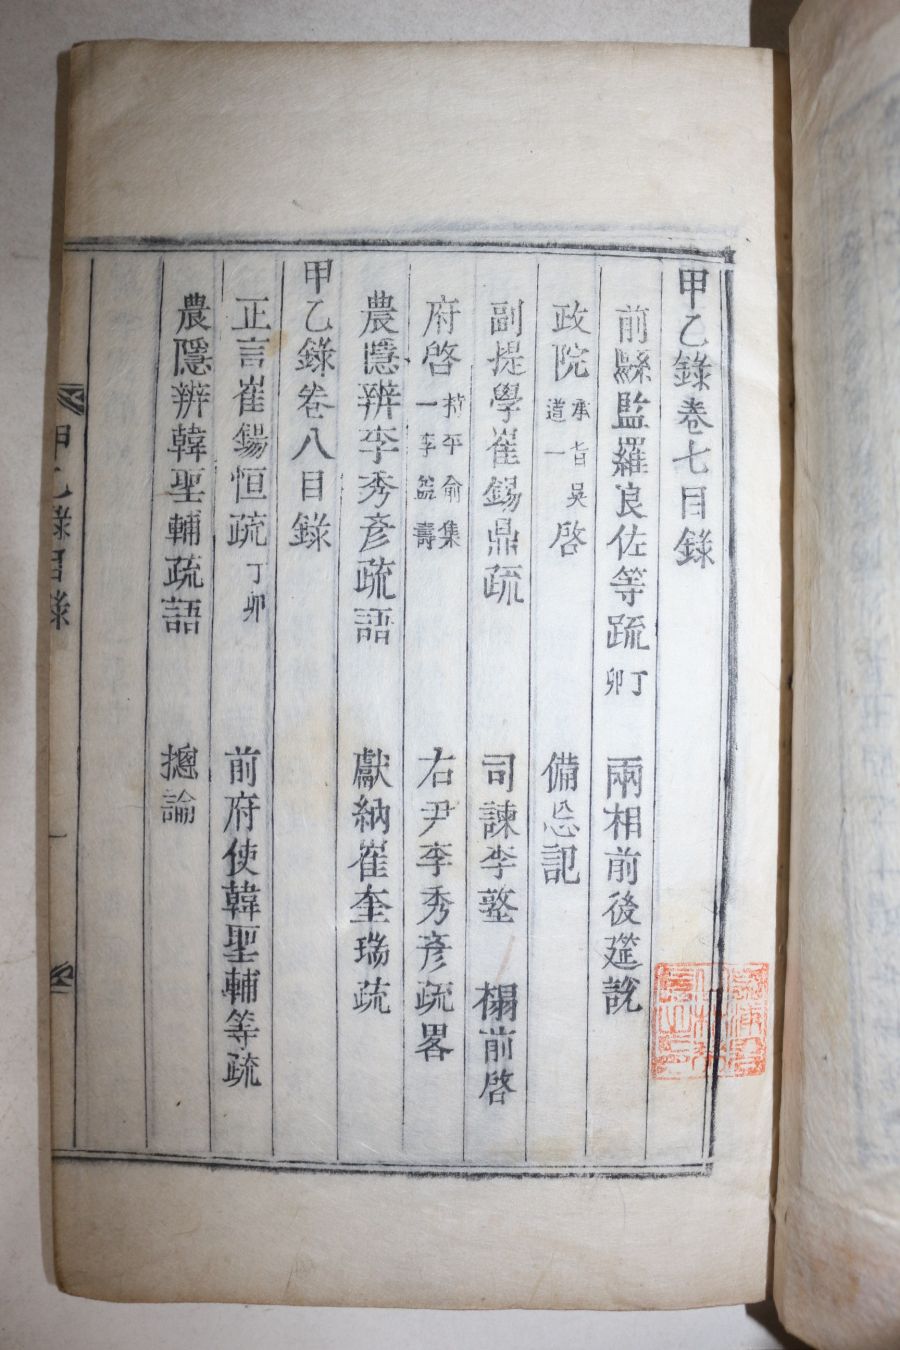 甲乙錄卷七目錄
前縣監羅良佐等疏 丁卯 兩相前後筵說
政院 承旨吳道一 啓 備忘記
副提學崔錫鼎疏 司諫李塾 榻前啓
府啓 持平俞集一李益壽 右尹李秀彦疏畧
農隱辨李秀彦疏語 獻納崔奎瑞疏
甲乙錄卷八目錄
正言崔錫恒疏 丁卯 前府使韓聖輔等疏
農隱辨韓聖輔疏語 摠論
甲乙錄目錄 一